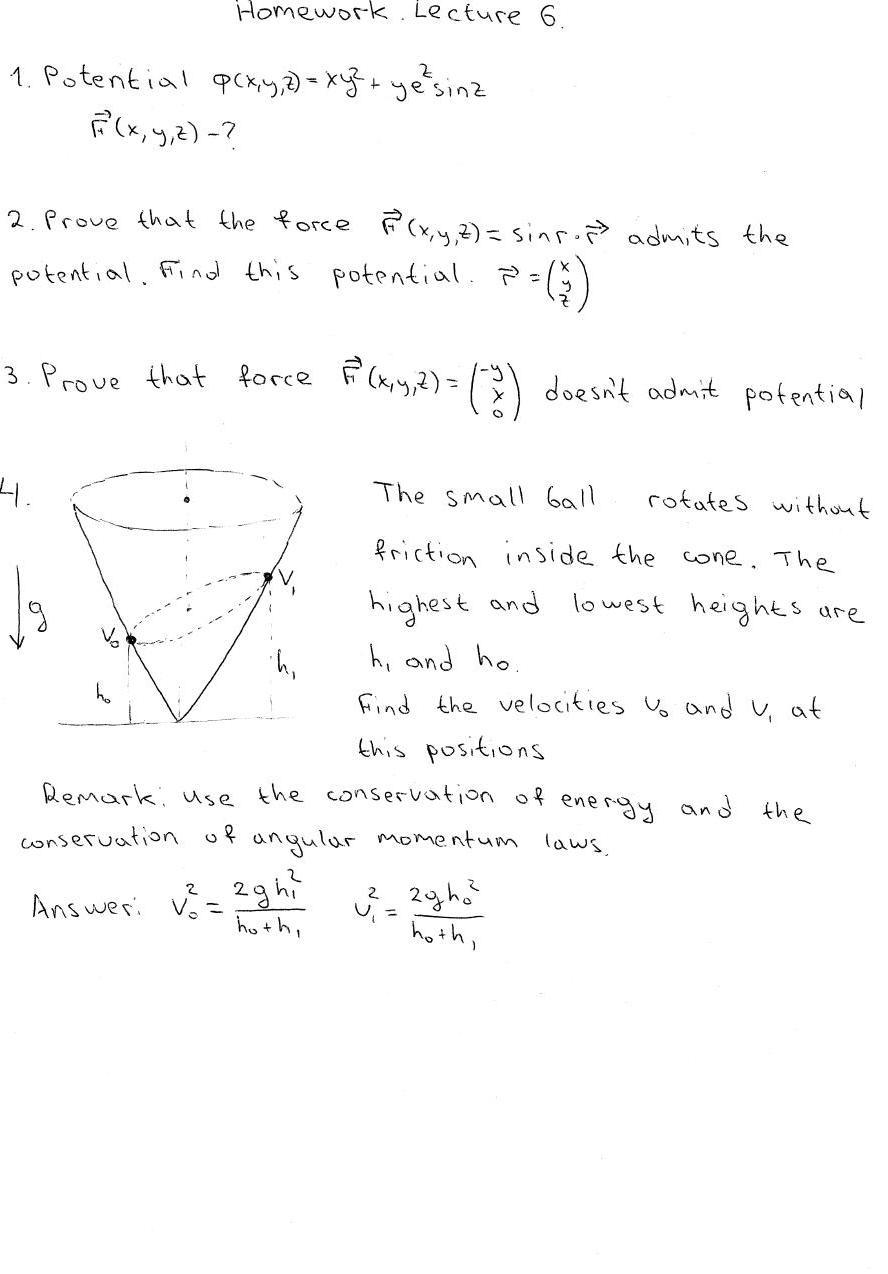 Homework. Lecture 6.
1. Potential φ(x,y,z) = xy² + ye²sinz
F⃗(x,y,z) - ?
2. Prove that the force F⃗(x,y,z) = sinr·r⃗ admits the
potential. Find this potential. r⃗ = (x y z)
3. Prove that force F⃗(x,y,z) = (-y x 0) doesn't admit potential
4.
The small ball rotates without
friction inside the cone. The
highest and lowest heights are
h₁ and h₀.
Find the velocities v₀ and v₁ at
this positions
g
V₀
V₁
h₀
h₁
Remark: use the conservation of energy and the
conservation of angular momentum laws.
Answer: V₀² = 2gh₁²/(h₀+h₁) v₁² = 2gh₀²/(h₀+h₁)